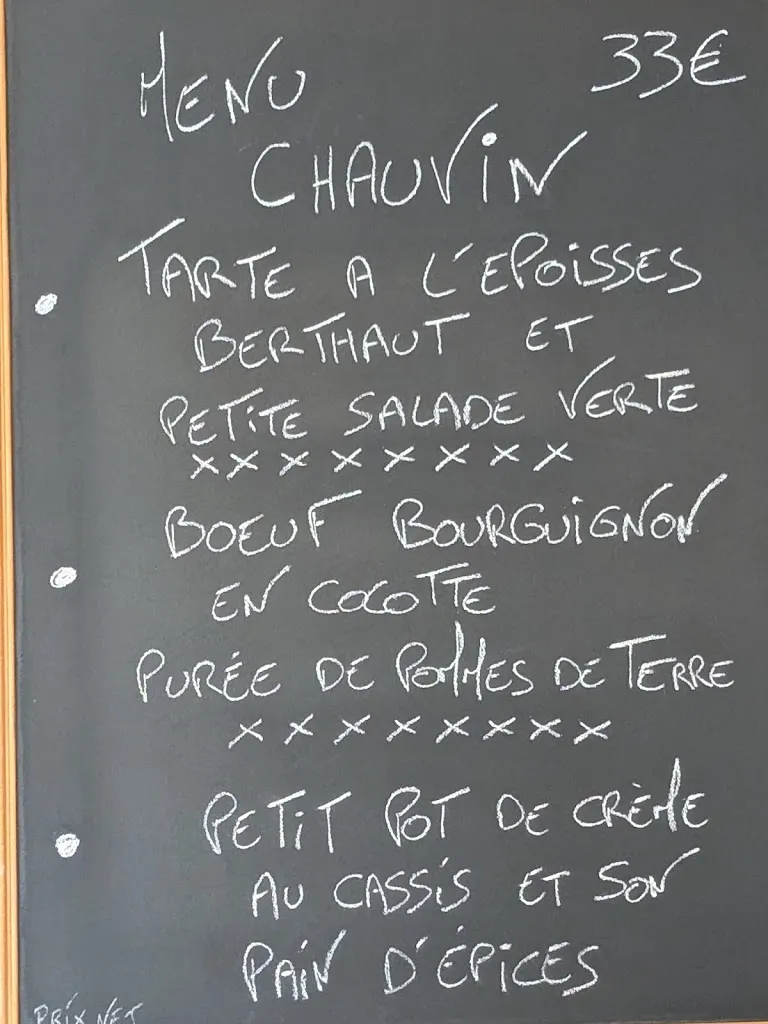 MENU 33€
CHAUVIN
TARTE A L'EPOISSES
BERTHAUT ET
PETITE SALADE VERTE
xxxxxxxx
BOEUF BOURGUIGNON
EN COCOTTE
PURÉE DE POMMES DE TERRE
xxxxxxxx
PETIT POT DE CRÈME
AU CASSIS ET SON
PAIN D'ÉPICES
PRIX NET